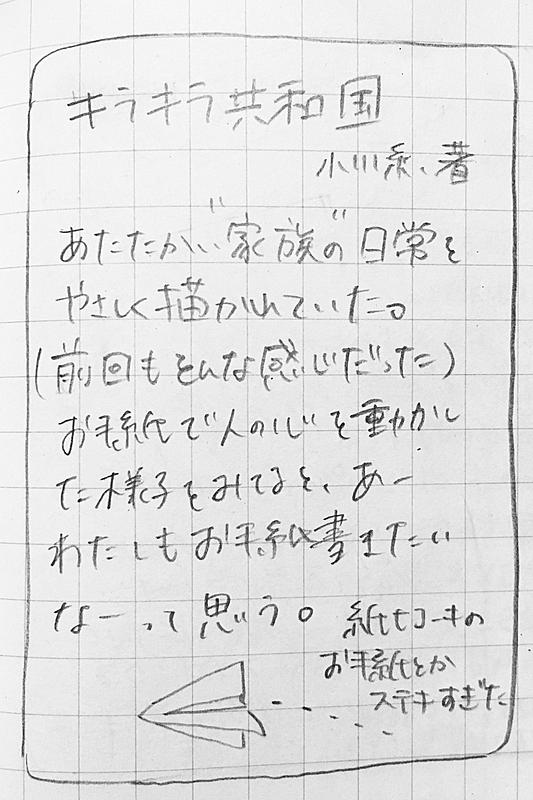 キラキラ共和国
小川糸、著
あたたかい"家族"の日常を
やさしく描かれていた。
(前回もそんな感じだった)
お手紙で人の心を動かし
た様子をみてると、あー
わたしもお手紙書きたい
なーって思う。
紙ヒコーキの
お手紙とか
ステキすぎた